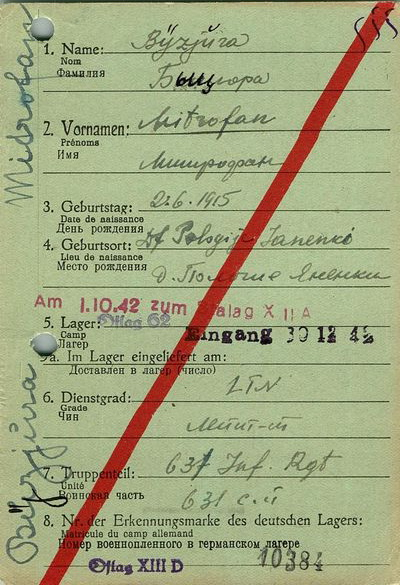 1. Name: Byzjura
Nom
Фамилия Быцюра
2. Vornamen: Mitrofan
Prénoms
Имя Митрофан
3. Geburtstag: 22.6.1915
Date de naissance
День рождения
4. Geburtsort: Df Pologije Janenki
Lieu de naissance
Место рождения д. Пологие Яненки
Am 1.10.42 zum Stalag X II A
5. Lager: Oflag 62
Camp Eingang 30 12 42
Лагер
5a. Im Lager eingeliefert am:
Доставлен в лагер (число)
6. Dienstgrad: LTN
Grade
Чин
7. Truppenteil: 631 Inf. Rgt
Unité
Воинская часть 631 с.п
8. Nr. der Erkennungsmarke des deutschen Lagers:
Matricule du camp allemand
Номер военнопленного в германском лагере
Oflag XIII D 10384
Byzjura